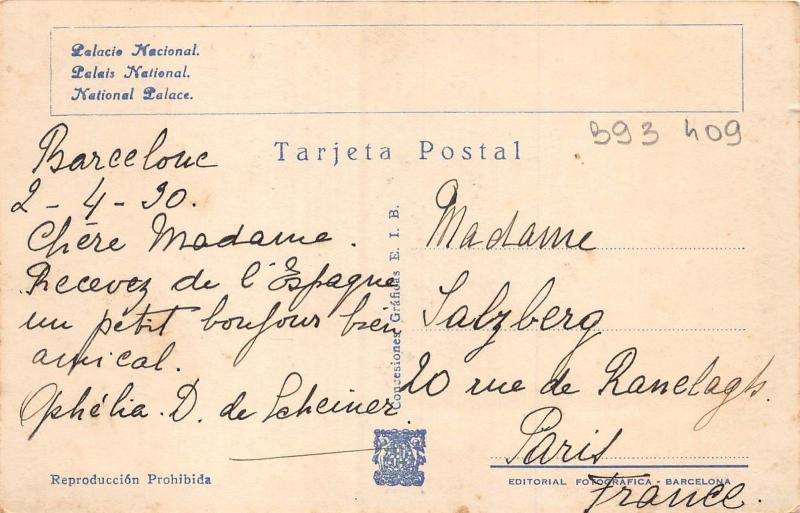 Palacio Nacional.
Palais National.
National Palace.
B93 409
Tarjeta Postal
Barcelone
2-4-30.
Chère Madame.
Recevez de l'Espagne
un petit bonjour bien
amical.
Ophélia. D. de Scheiner.
Concesiones Gráficas E. I. B.
Madame
Salzberg
20 rue de Ranelagh.
Paris
France.
Reproducción Prohibida
EDITORIAL FOTOGRÁFICA - BARCELONA